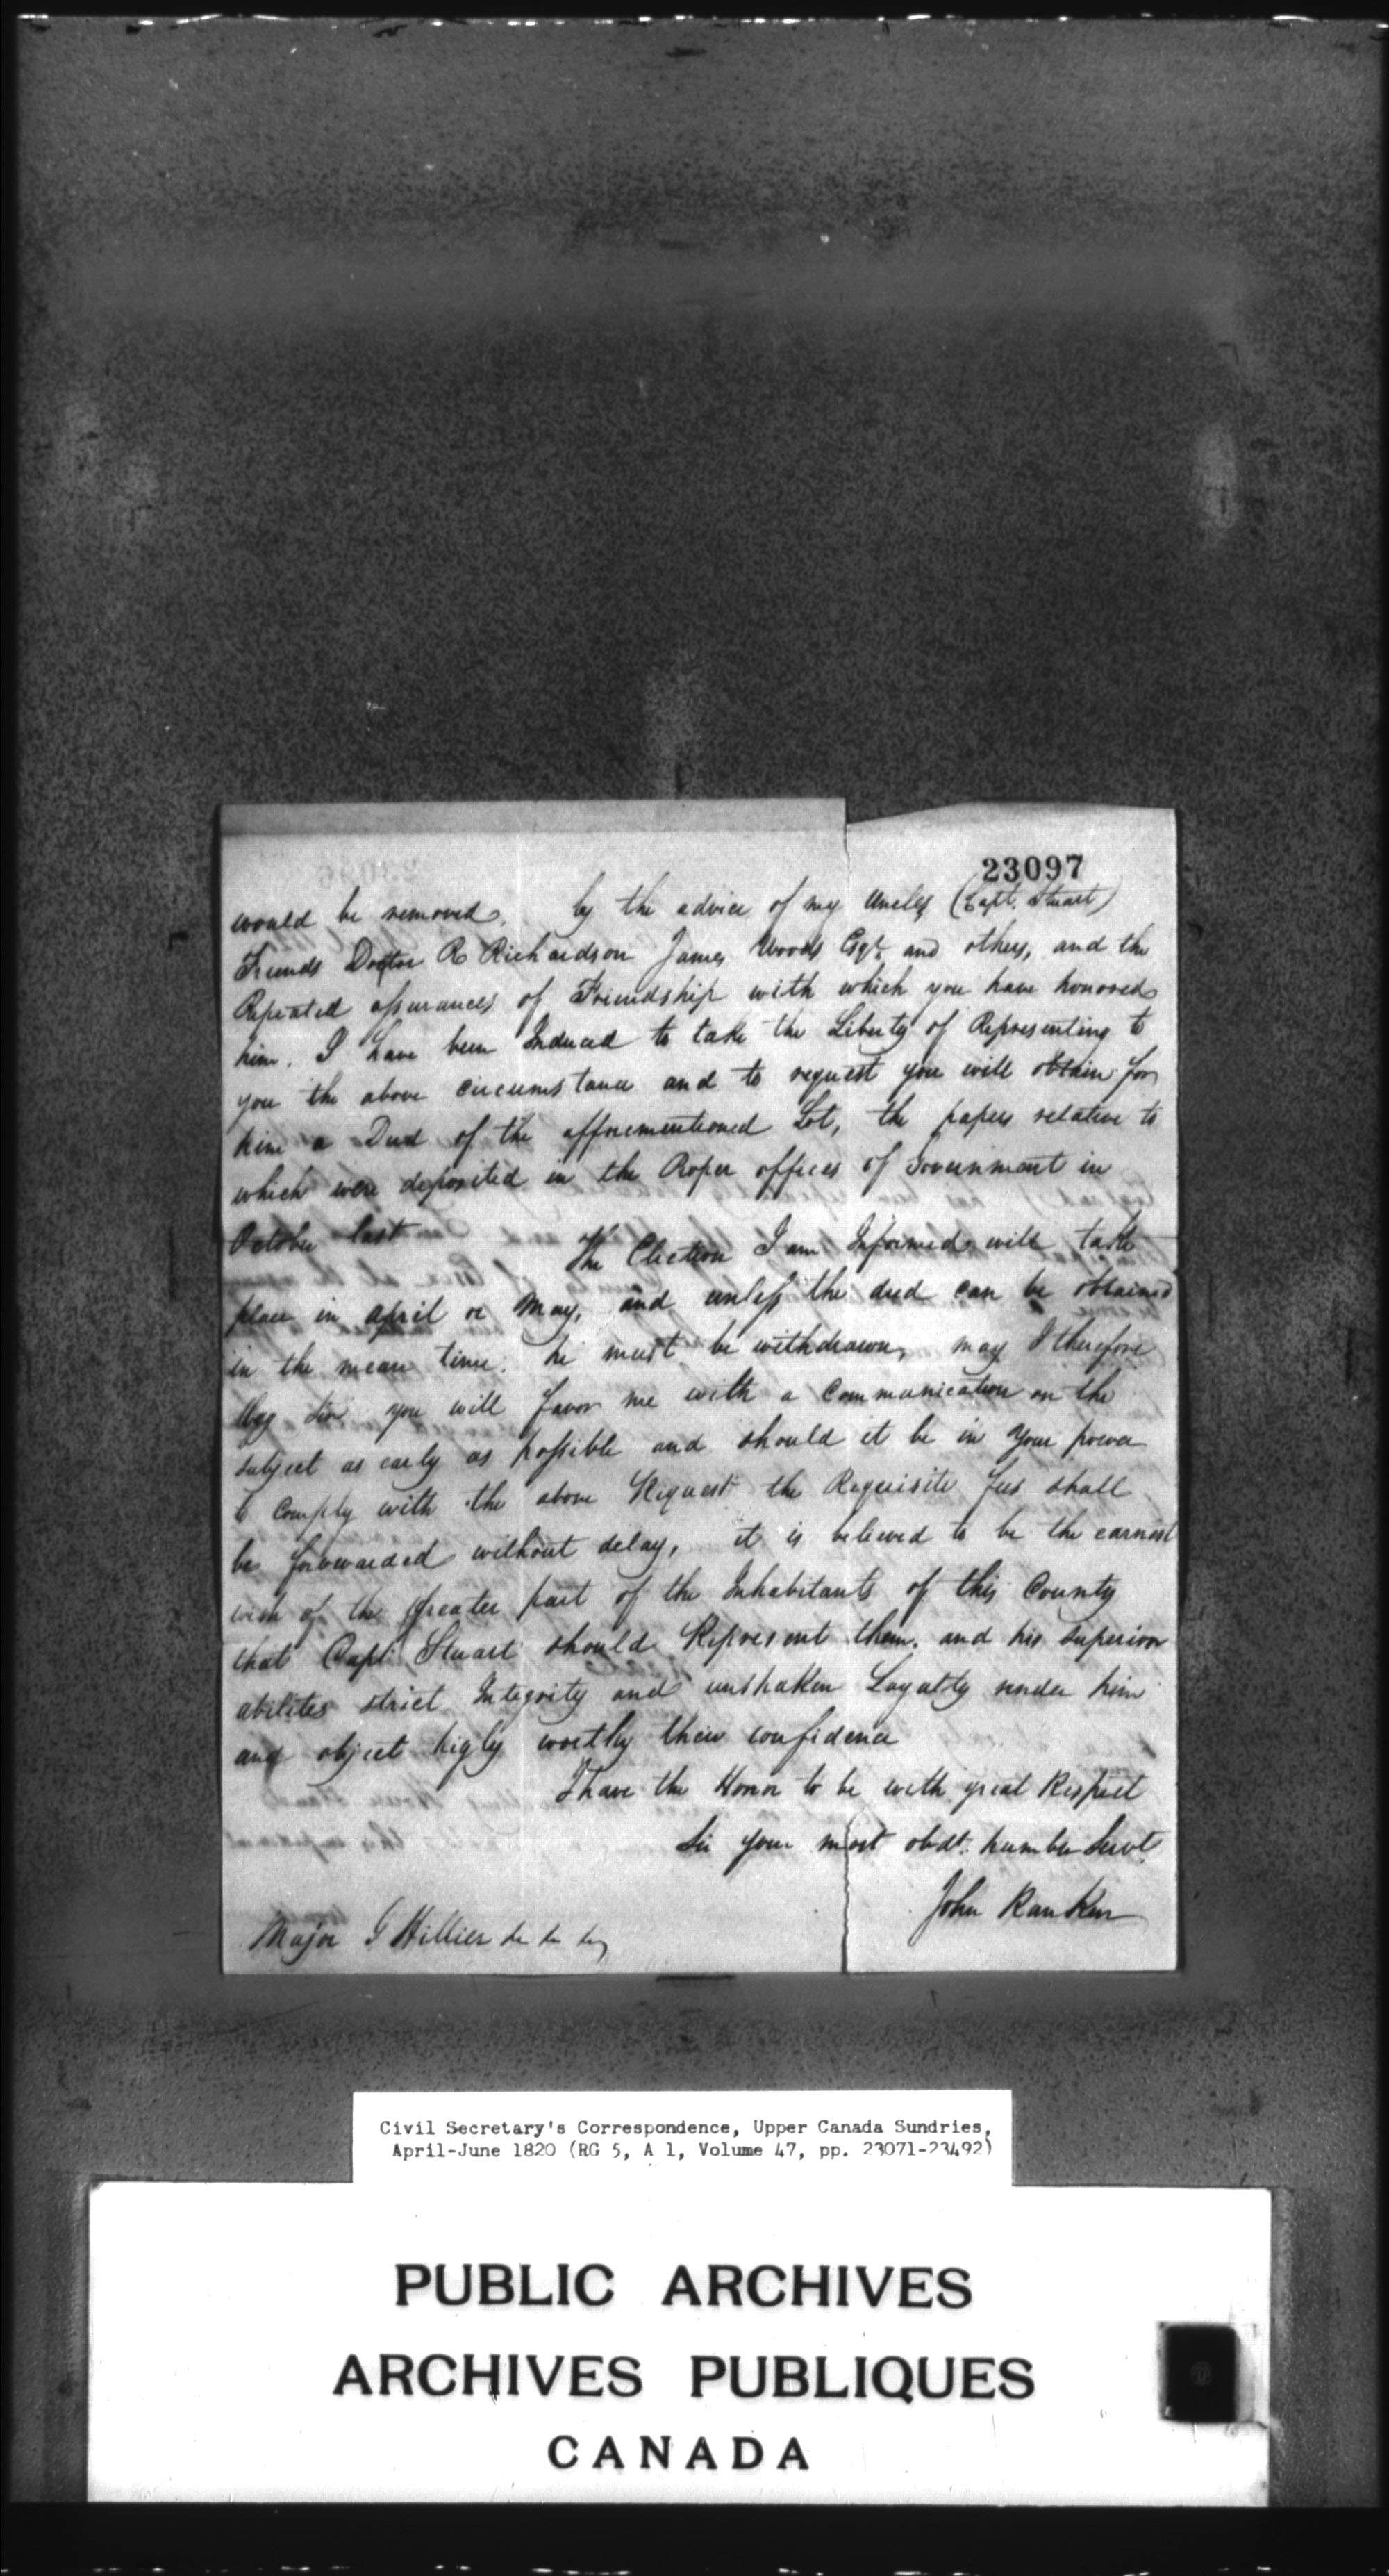 23097
would be removed. by the advice of my Uncles (Capt. Stuart)
Friends Doctor R Richardson James Woods Esqr. and others, and the
Repeated assurances of Friendship with which you have honored
him. I have been Induced to take the Liberty of Representing to
you the above circumstance and to request you will obtain for
him a Deed of the afforementioned Lot, the papers relative to
which were deposited in the Roper offices of Government in
October last
The Election I am Informed will take
place in april or May, and unless the deed can be obtained
in the mean time. he must be withdrawn, may I therefore
Beg Sir you will favor me with a Communication on the
subject as early as possible and should it be in your power
to Comply with the above Request the Requisite fees shall
be forwarded without delay, it is believed to be the earnest
wish of the Greater part of the Inhabitants of this County
that Capt Stuart should Represent them. and his superior
abilites strict Integrity and unshaken Loyalty render him
and object higly worthy their confidence
I have the Honor to be with great Respect
Sir your most obdt. humbe Servt.
John Ranken
Major G Hillier
Civil Secretary's Correspondence, Upper Canada Sundries,
April-June 1820 (RG 5, A 1, Volume 47, pp. 23071-23492)
PUBLIC ARCHIVES
ARCHIVES PUBLIQUES
CANADA